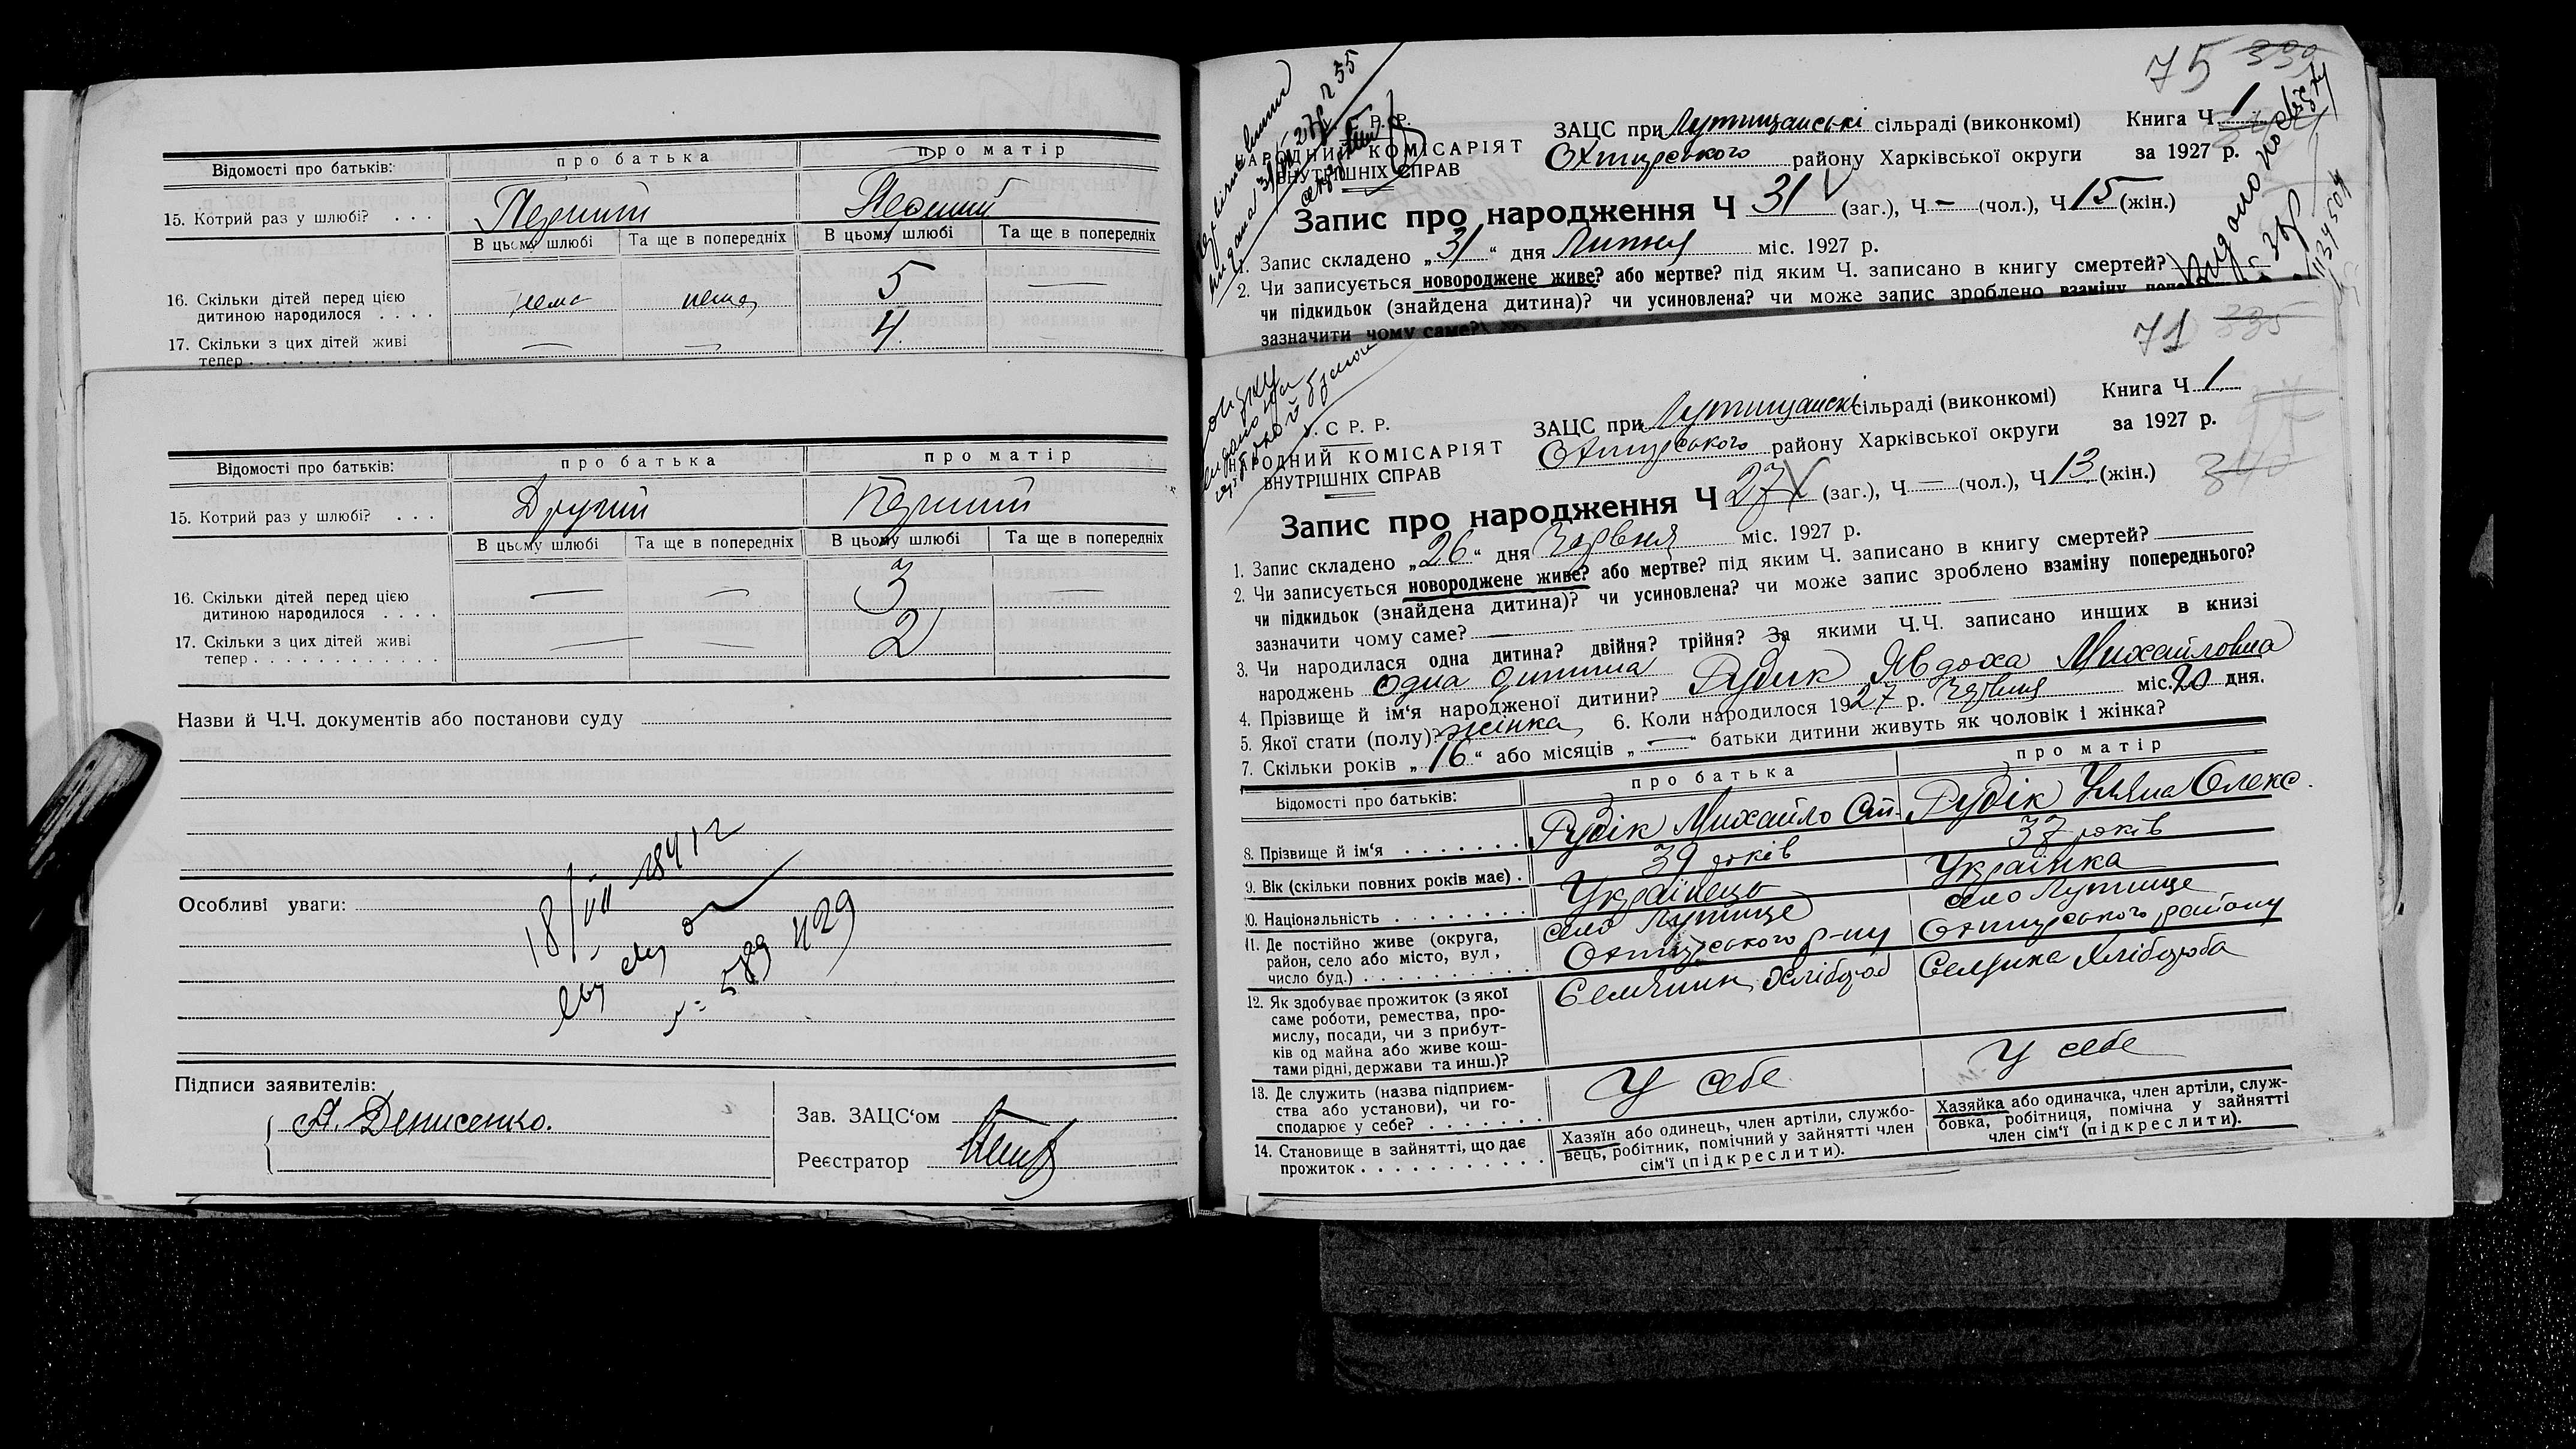 Відомості про батьків: про батька про матір
15. Котрий раз у шлюбі? . . . Перший Перший
В цьому шлюбі Та ще в попередніх В цьому шлюбі Та ще в попередніх
16. Скільки дітей перед цією
дитиною народилося . . . . нема нема 5 —
17. Скільки з цих дітей живі
тепер . . . . . . . . . . . . — — 4
Відомості про батьків: про батька про матір
15. Котрий раз у шлюбі? . . . Другий Перший
В цьому шлюбі Та ще в попередніх В цьому шлюбі Та ще в попередніх
16. Скільки дітей перед цією
дитиною народилося . . . . — — 3 —
17. Скільки з цих дітей живі
тепер . . . . . . . . . . . . — — 2
Назви й Ч.Ч. документів або постанови суду
Особливі уваги:
Підписи заявителів:
А. Денисенко.
Зав. ЗАЦС'ом
Реєстратор
75 330
Р. Р.
НАРОДНИЙ КОМІСАРІЯТ
ВНУТРІШНІХ СПРАВ
ЗАЦС при Лутищанські сільраді (виконкомі) Книга Ч 1
Охтирського району Харківської округи за 1927 р.
Запис про народження Ч 31 (заг.), Ч — (чол.), Ч 15 (жін.)
1. Запис складено „31“ дня Липня міс. 1927 р.
2. Чи записується новороджене живе? або мертве? під яким Ч. записано в книгу смертей?
чи підкидьок (знайдена дитина)? чи усиновлена? чи може запис зроблено взаміну
зазначити чому саме?
71 335
С Р. Р.
НАРОДНИЙ КОМІСАРІЯТ
ВНУТРІШНІХ СПРАВ
ЗАЦС при Лутищанскі сільраді (виконкомі) Книга Ч 1
Охтирського району Харківської округи за 1927 р.
340
Запис про народження Ч 27 (заг.), Ч — (чол.), Ч 13 (жін.)
1. Запис складено „26“ дня Червня міс. 1927 р.
2. Чи записується новороджене живе? або мертве? під яким Ч. записано в книгу смертей?
чи підкидьок (знайдена дитина)? чи усиновлена? чи може запис зроблено взаміну попереднього?
зазначити чому саме? —
3. Чи народилася одна дитина? двійня? трійня? За якими Ч.Ч. записано инших в книзі
народжень Одна дитина
4. Прізвище й ім'я народженої дитини? Рудик Явдоха Михайловна
5. Якої стати (полу)? жінка 6. Коли народилося 1927 р. Червня міс. 20 дня.
7. Скільки років „16“ або місяців „—“ батьки дитини живуть як чоловік і жінка?
Відомості про батьків: про батька про матір
8. Прізвище й ім'я . . . . . . . Рудік Михайло Ст. Рудік Уляна Олекс.
9. Вік (скільки повних років має) . 39 років 37 років
10. Національність . . . . . . . . Українець Українка
11. Де постійно живе (округа,
район, село або місто, вул,
число буд.) . . . . . . . . . . село Лутище Охтирського р-ну село Лутище Охтирського району
12. Як здобуває прожиток (з якої
саме роботи, ремества, про-
мислу, посади, чи з прибут-
ків од майна або живе кош-
тами рідні, держави та инш.)? Селянин Хлібороб Селянка Хлібороба
13. Де служить (назва підприєм-
ства або установи), чи го-
сподарює у себе? . . . . . . . У себе У себе
14. Становище в зайнятті, що дає
прожиток . . . . . . . . . . .
Хазяїн або одинець, член артіли, службо-
вець, робітник, помічний у зайнятті член
сім'ї (підкреслити).
Хазяйка або одиначка, член артіли, служ-
бовка, робітниця, помічна у зайнятті
член сім'ї (підкреслити).